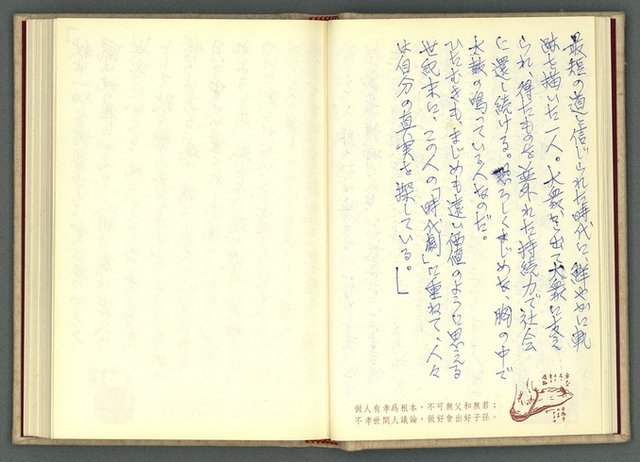 最短の道と信じられた時代に、鮮やかに軌
跡を描いた一人。大衆を出て大衆に支え
られ、得たものを並外れた持続力で社会
に還し続ける。恐ろしくまじめな、胸の中で
太鼓の鳴っている人なのだ。
ひたむきも、まじめも遠い価値のように思える
世紀末に、この人の「時代劇」に重ねて、人々
は自分の真実を探している。」
做人有孝為根本，不可無父和無君；
不孝世間人議論，做好會出好子孫。